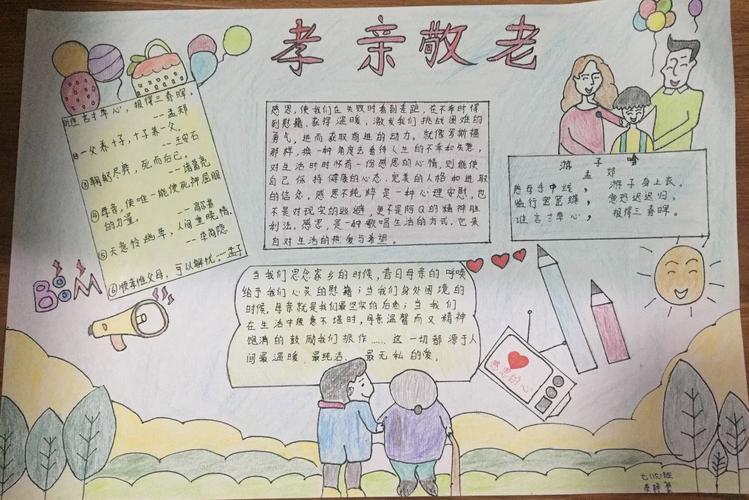 孝亲敬老
谁言寸草心，报得三春晖。
--孟郊
②一父养十子，十子养一父。
③鞠躬尽瘁，死而后已。
--诸葛亮
④母亲，使唯一能使死神屈服
的力量。
⑤天意怜幽草，人间重晚情。
--李商隐
⑥惟孝顺父母，可以解忧。--孟子
BOOM
感恩，使我们在失败时看到差距，在不幸时得
到慰藉、获得温暖，激发我们挑战困难的
勇气，进而获取前进的动力。就像罗斯福
那样，换一种角度去看待人生的不幸和失意，
对生活时时怀有一份感恩的心情，则能使
自己保持健康的心态、完美的人格和进取
的信念。感恩不纯粹是一种心理安慰，也
不是对现实的逃避，更不是阿Q的精神胜
利法。感恩，是一种歌唱生活的方式，它来
自对生活的热爱与希望。
游子吟
孟郊
慈母手中线，游子身上衣。
临行密密缝，意恐迟迟归。
谁言寸草心，报得三春晖。
当我们思念家乡的时候，昔日母亲的呼唤
给予我们心灵的慰藉；当我们身处困境的
时候，母亲就是我们最坚实的后盾；当我们
在生活中疲惫不堪时，母亲温馨而又精神
饱满的鼓励我们振作……这一切都源于人
间最温暖、最纯洁、最无私的爱。
感恩的心